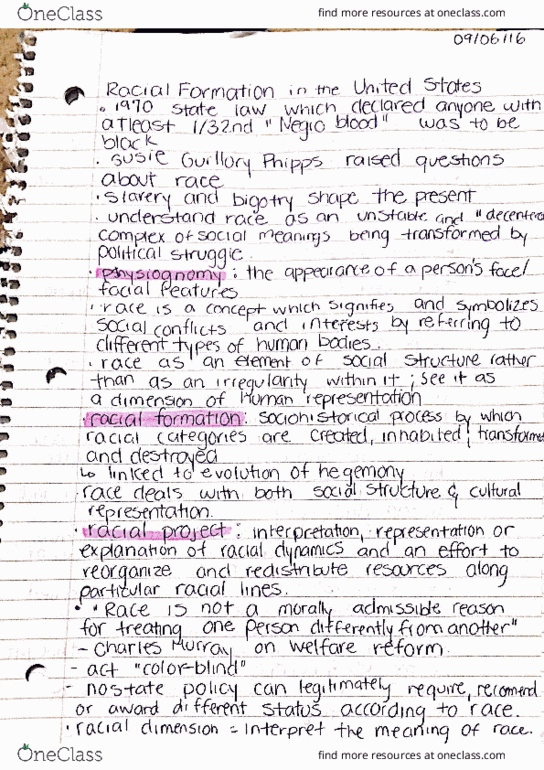 OneClass
find more resources at oneclass.com
09/06/16
Racial Formation in the United States
• 1970 state law which declared anyone with
atleast 1/32nd "Negro blood" was to be
black
• Susie Guillory Phipps raised questions
about race
• Slavery and bigotry shape the present
• understand race as an unstable and "decentred
complex of social meanings being transformed by
political struggle.
• physiognomy: the appearance of a person's face/
facial features
• race is a concept which signifies and symbolizes
social conflicts and interests by referring to
different types of human bodies.
• race as an element of social structure rather
than as an irregularity within it; see it as
a dimension of human representation
• racial formation: sociohistorical process by which
racial categories are created, inhabited, transforme
and destroyed
↳ linked to evolution of hegemony
race deals with both social structure & cultural
representation.
• racial project: interpretation, representation or
explanation of racial dynamics and an effort to
reorganize and redistribute resources along
particular racial lines.
• "Race is not a morally admissible reason
for treating one person differently from another"
- Charles Murray on welfare reform.
- act "color-blind"
- no state policy can legitimately require, recomend
or award different status according to race.
• racial dimension = interpret the meaning of race.
OneClass
find more resources at oneclass.com